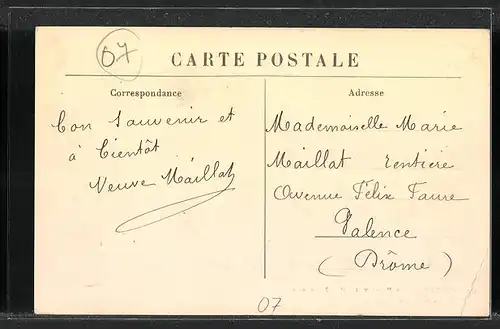 07
CARTE POSTALE
Correspondance
Bon Souvenir et
à bientôt
Veuve Maillat
Adresse
Mademoiselle Marie
Maillat rentière
Avenue Félix Faure
Valence
(Drôme)
07